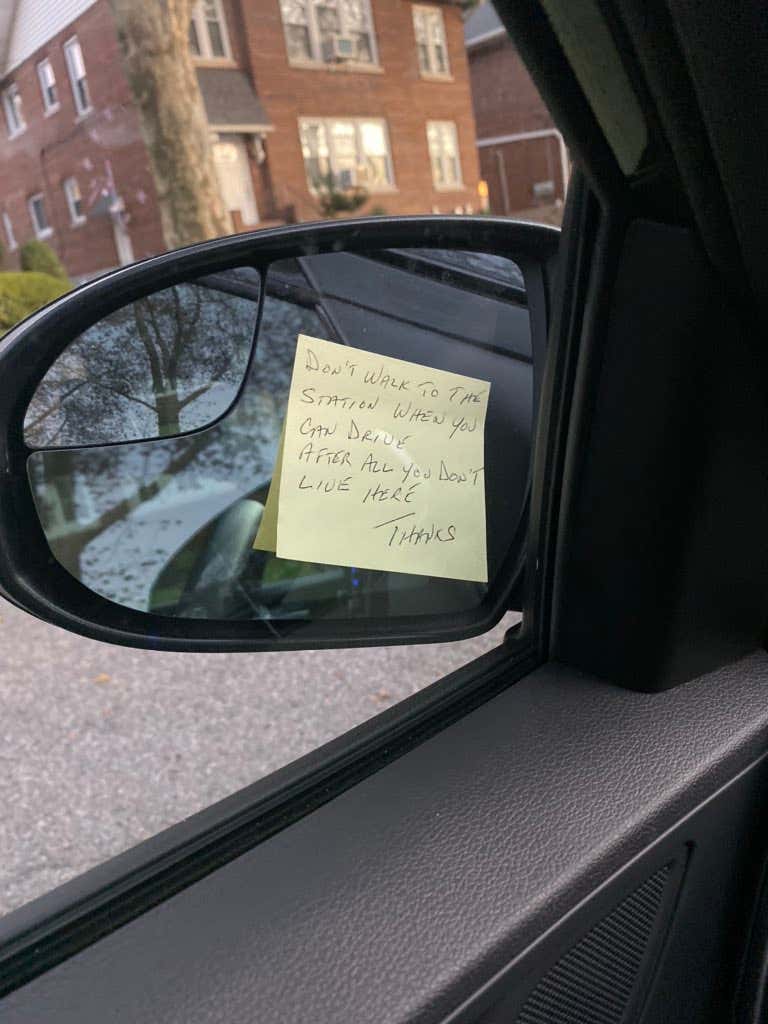 DON'T WALK TO THE
STATION WHEN YOU
CAN DRIVE
AFTER ALL YOU DON'T
LIVE HERE
THANKS